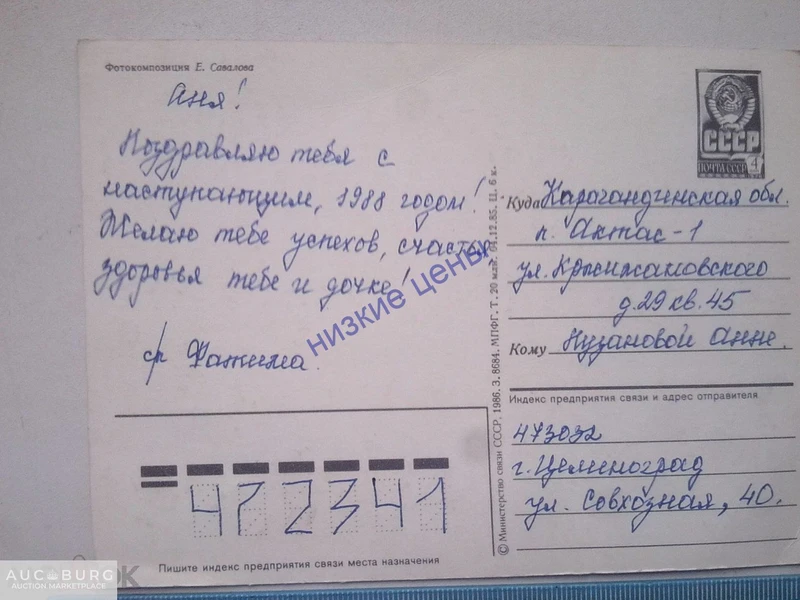 Фотокомпозиция Е. Савалова
Аня!
Поздравляю тебя с
наступающим, 1988 годом!
Желаю тебе успехов, счастья,
здоровья тебе и дочке!
с/р Фатима.
низкие цены
СССР
ПОЧТА СССР 4
Куда Карагандинская обл.
п. Актас-1
ул. Кржижановского
д. 29 кв. 45
Кому Пузановой Анне.
Индекс предприятия связи и адрес отправителя
473032
г. Целиноград
ул. Совхозная, 40.
© Министерство связи СССР, 1986. З. 8684. МПФГ. Т. 20 млн. 04.12.85. Ц. 6 к.
472341
Пишите индекс предприятия связи места назначения
AUCBURG
AUCTION MARKETPLACE